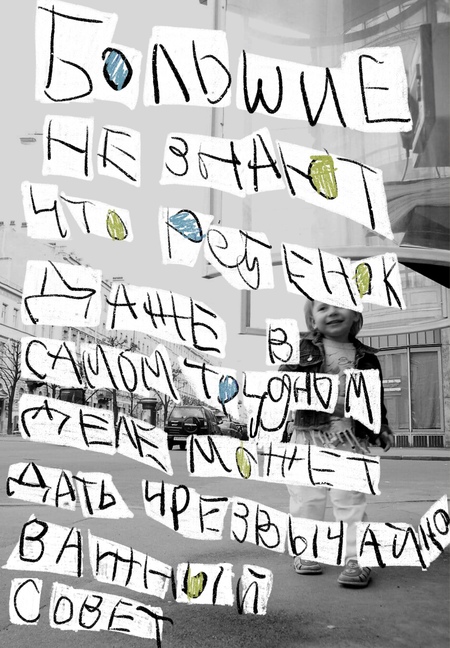 БОЛЬШИЕ
НЕ ЗНАЮТ
ЧТО РЕБЕНОК
ДАЖЕ В
САМОМ ТРУДНОМ
ДЕЛЕ МОЖЕТ
ДАТЬ ЧРЕЗВЫЧАЙНО
ВАЖНЫЙ
СОВЕТ